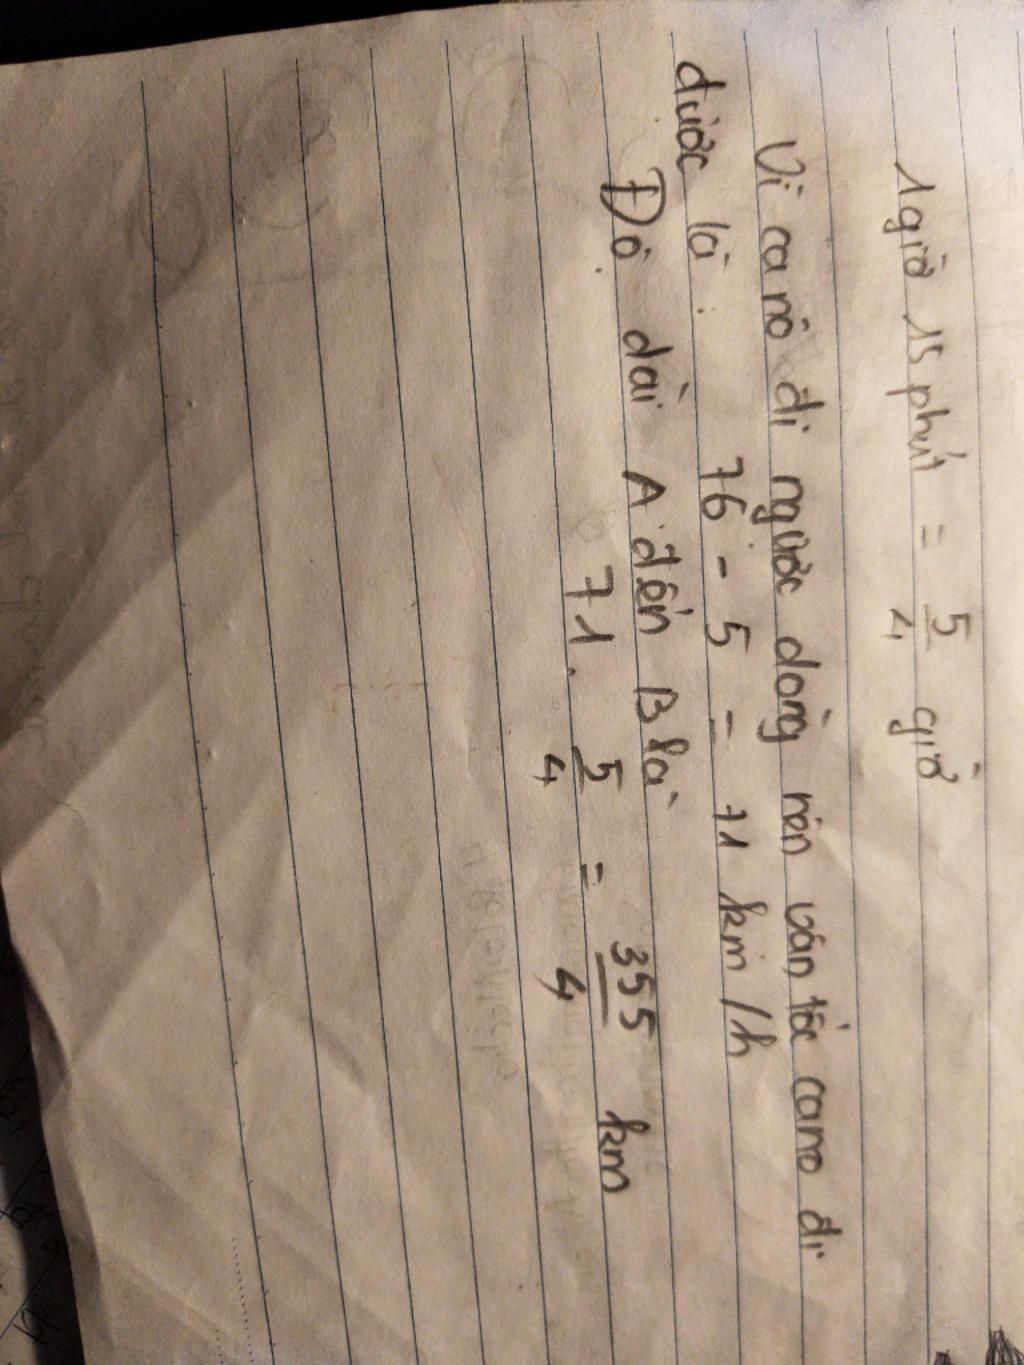 1 giờ 15 phút = 5/4 giờ
Vì ca nô đi ngược dòng nên vận tốc cano đi
được là: 76 - 5 = 71 km/h
Độ dài A đến B là
71. 5/4 = 355/4 km